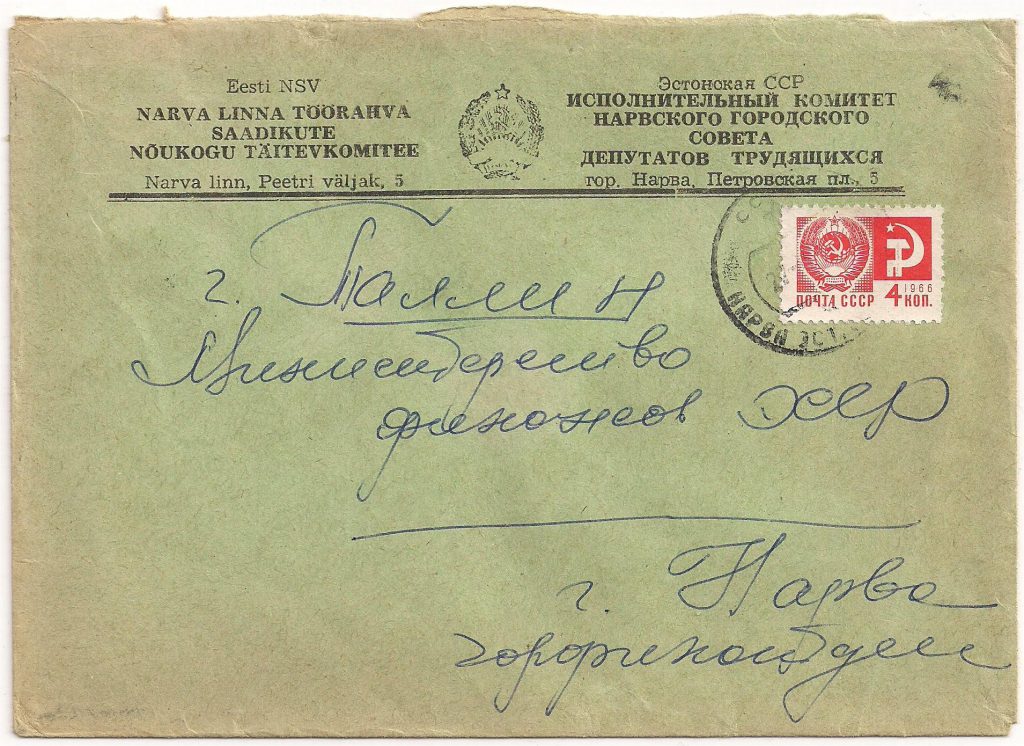 Eesti NSV
NARVA LINNA TÖÖRAHVA
SAADIKUTE
NÕUKOGU TÄITEVKOMITEE
Narva linn, Peetri väljak, 5
Эстонская ССР
ИСПОЛНИТЕЛЬНЫЙ КОМИТЕТ
НАРВСКОГО ГОРОДСКОГО
СОВЕТА
ДЕПУТАТОВ ТРУДЯЩИХСЯ
гор. Нарва, Петровская пл., 5
1966
ПОЧТА СССР 4 КОП.
НАРВА ЭСТ.
г. Таллин
Министерство
финансов ЭССР
г. Нарва
горфинотдел